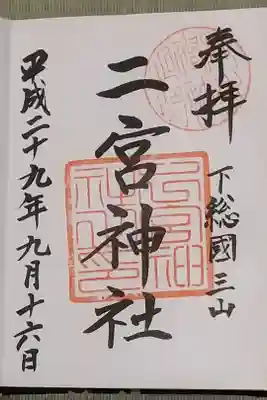 奉拝
下総國三山
二宮神社
平成二十九年九月十六日